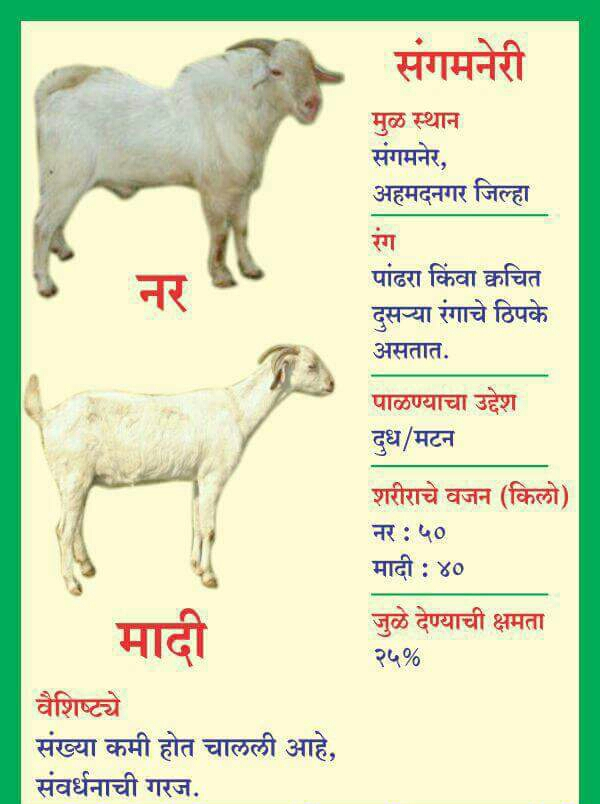 संगमनेरी
मुळ स्थान
संगमनेर,
अहमदनगर जिल्हा
रंग
पांढरा किंवा क्वचित
दुसऱ्या रंगाचे ठिपके
असतात.
पाळण्याचा उद्देश
दुध/मटन
शरीराचे वजन (किलो)
नर : ५०
मादी : ४०
जुळे देण्याची क्षमता
२५%
नर
मादी
वैशिष्ट्ये
संख्या कमी होत चालली आहे,
संवर्धनाची गरज.